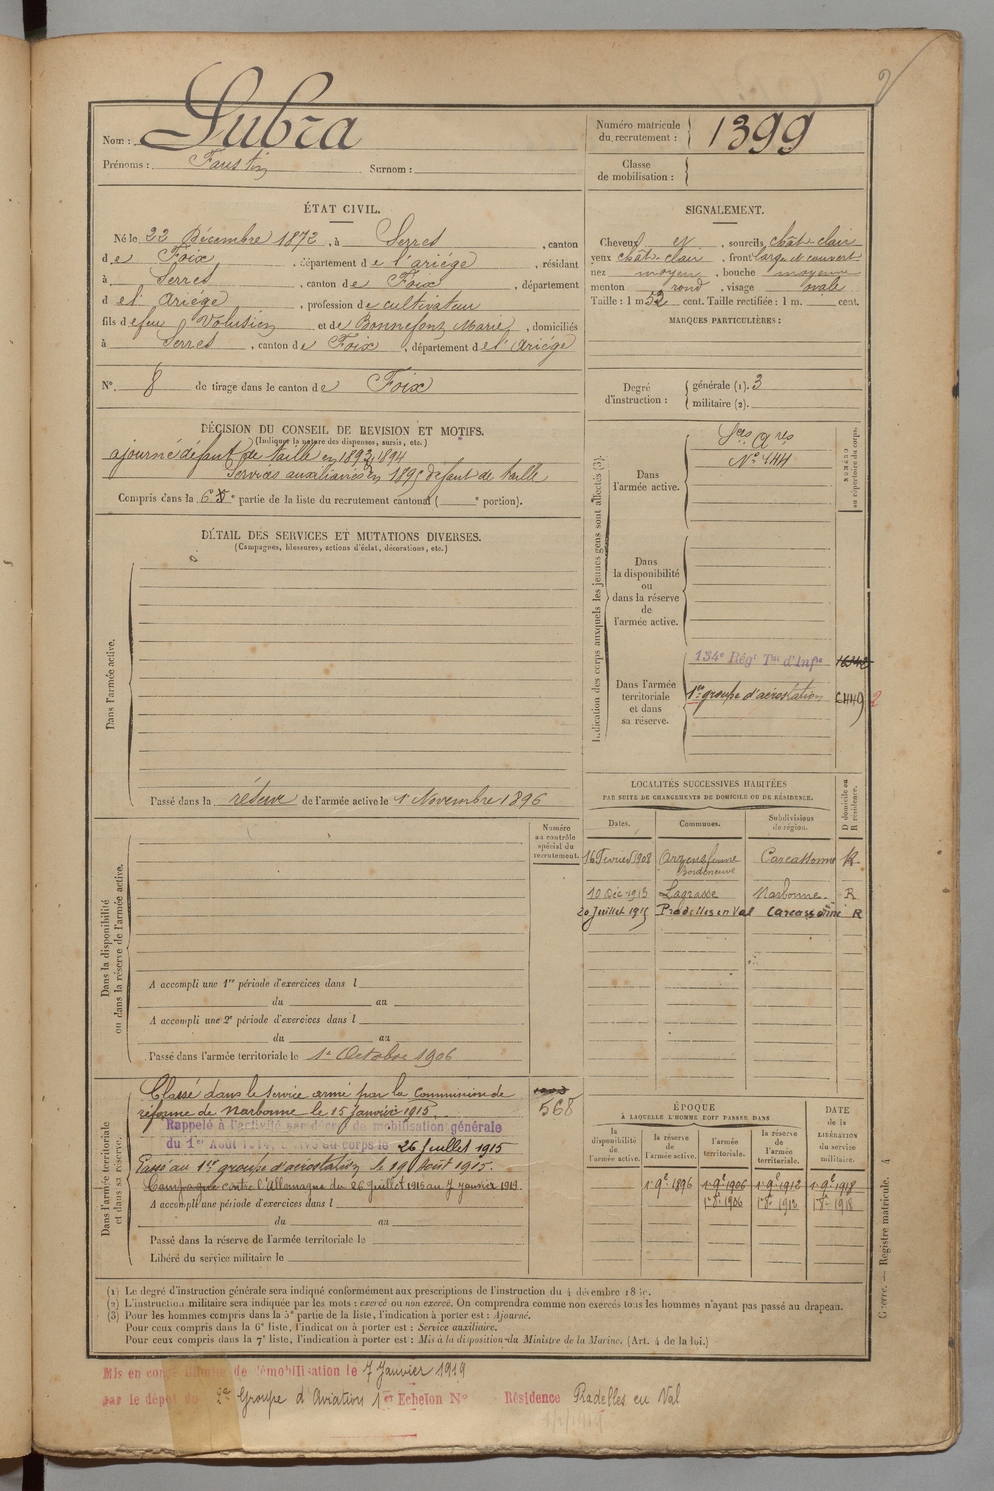 2
Nom : Subra
Prénoms : Faustin Surnom :
Numéro matricule du recrutement : 1399
Classe de mobilisation :
ÉTAT CIVIL.
Né le 22 Décembre 1872, à Serres, canton
de Foix, département de l'ariége, résidant
à Serres, canton de Foix, département
de l'Ariége, profession de cultivateur
fils de feu Volusien et de Bonnefont Marie, domiciliés
à Serres, canton de Foix, département de l'Ariége
N°. 8 de tirage dans le canton de Foix
SIGNALEMENT.
Cheveux et, sourcils chât-clair
yeux chât clair, front large et couvert
nez moyen, bouche moyenne
menton rond, visage ovale
Taille : 1 m 52 cent. Taille rectifiée : 1 m. cent.
MARQUES PARTICULIÈRES :
Degré d'instruction : générale (1). 3
militaire (2).
DÉCISION DU CONSEIL DE REVISION ET MOTIFS.
(Indiquer la nature des dispenses, sursis, etc.)
ajourné défaut de taille en 1893, 1894
Services auxiliaires en 1895 défaut de taille
Compris dans la 6e partie de la liste du recrutement cantonal ( e portion).
DÉTAIL DES SERVICES ET MUTATIONS DIVERSES.
(Campagnes, blessures, actions d'éclat, décorations, etc.)
Dans l'armée active.
Passé dans la réserve de l'armée active le 1 Novembre 1896
Indication des corps auxquels les jeunes gens sont affectés (3).
NUMÉRO au répertoire du corps.
Dans l'armée active.
N° 144
Dans la disponibilité ou dans la réserve de l'armée active.
Dans l'armée territoriale et dans sa réserve.
134e Régt Tal d'Infie
1er groupe d'aérostation 6449 2
LOCALITÉS SUCCESSIVES HABITÉES
PAR SUITE DE CHANGEMENTS DE DOMICILE OU DE RÉSIDENCE.
Dates. Communes. Subdivisions de région. D domicile ou R résidence.
16 Février 1908 Carcassonne R
Bordeneuve
10 Déc 1913 Lagrasse Narbonne. R
20 Juillet 1915 Pradelles en Val Carcassonne R
Numéro au contrôle spécial du recrutement.
Dans la disponibilité ou dans la réserve de l'armée active.
A accompli une 1re période d'exercices dans l
du au
A accompli une 2e période d'exercices dans l
du au
Passé dans l'armée territoriale le 1er Octobre 1906
Dans l'armée territoriale et dans sa réserve.
Classé dans le service armé par la Commission de
réforme de Narbonne le 15 janvier 1915.
568
Rappelé à l'activité par décret de mobilisation générale
du 1er Août 1914, Arrivé au corps le 26 Juillet 1915
Passé au 1er groupe d'aérostation le 19 Août 1915.
Campagne contre l'Allemagne du 26 juillet 1915 au 7 Janvier 1919.
A accompli une période d'exercices dans l
du au
Passé dans la réserve de l'armée territoriale le
Libéré du service militaire le
ÉPOQUE
À LAQUELLE L'HOMME DOIT PASSER DANS
la disponibilité de l'armée active. la réserve de l'armée active. l'armée territoriale. la réserve de l'armée territoriale. DATE de la LIBÉRATION du service militaire.
1 9e 1896 1 9e 1906 1 9e 1912 1 9e 1918
1 8e 1906 1 8e 1912 1 8e 1918
(1) Le degré d'instruction générale sera indiqué conformément aux prescriptions de l'instruction du 4 décembre
(2) L'instruction militaire sera indiquée par les mots : exercé ou non exercé. On comprendra comme non exercés tous les hommes n'ayant pas passé au drapeau.
(3) Pour les hommes compris dans la 5e partie de la liste, l'indication à porter est : Ajourné.
Pour ceux compris dans la 6e liste, l'indication à porter est : Service auxiliaire.
Pour ceux compris dans la 7e liste, l'indication à porter est : Mis à la disposition du Ministre de la Marine. (Art. 4 de la loi.)
Guerre. — Registre matricule. 4
Mis en congé illimité de démobilisation le 7 Janvier 1919
par le dépôt du 2e Groupe d'Aviation 1er Echelon N° Résidence Pradelles en Val